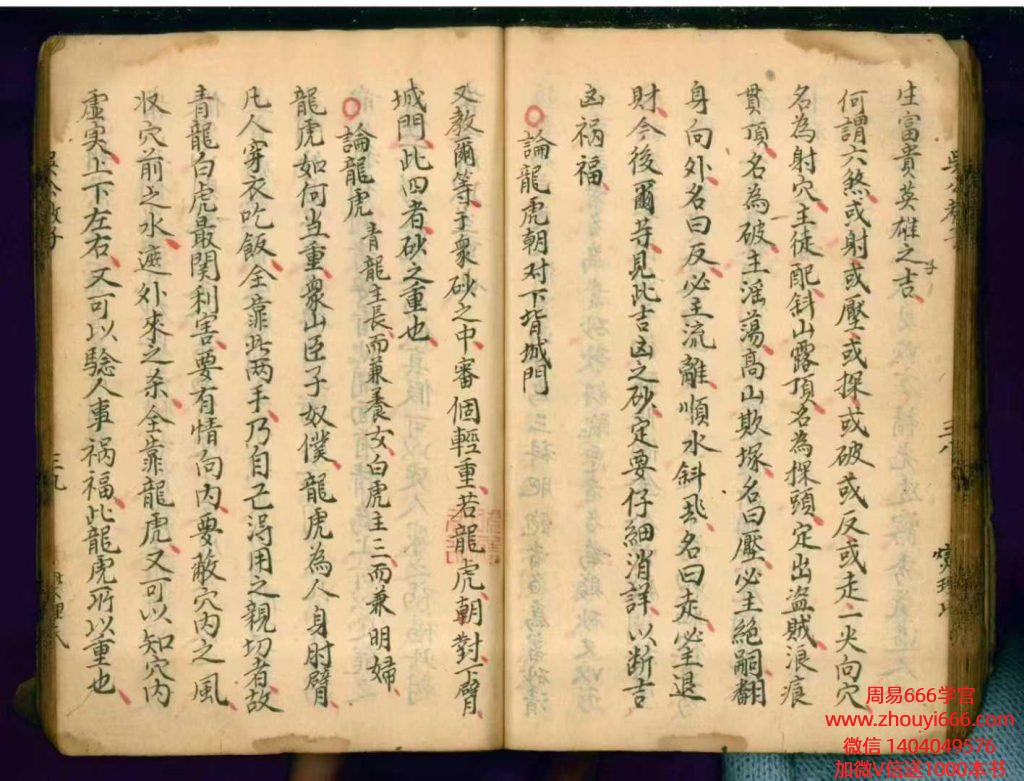 生富貴英雄之吉
何謂六煞或射或壓或探或破或反或走一尖向穴
名為射穴主徒配斜山露頂名為探頭定出盜賊浪痕
貫頂名為破主淫蕩高山欺塚名曰壓必主絕嗣翻
身向外名曰反必主流離順水斜飛名曰走必主退
財今後爾等見此吉凶之砂定要仔細消詳以断吉
凶祸福
論龍虎朝对下揹城門
又教爾等于衆砂之中審個輕重若龍虎朝對下臂
城門此四者砂之重也
論龍虎 青龍主長而兼養女白虎主三而兼明婦
龍虎如何当重衆山臣子奴僕龍虎為人身肘臂
凡人穿衣吃飯全靠此两手乃自己得用之親切者故
青龍白虎最関利害要有情向内要蔽穴内之風
收穴前之水遮外來之杀全靠龍虎又可以知穴内
虛实上下左右又可以驗人事祸福此龍虎所以重也
三八
三九
周易666学官
www.zhouyi666.com
微信 1404049576
加微V信送1000本书